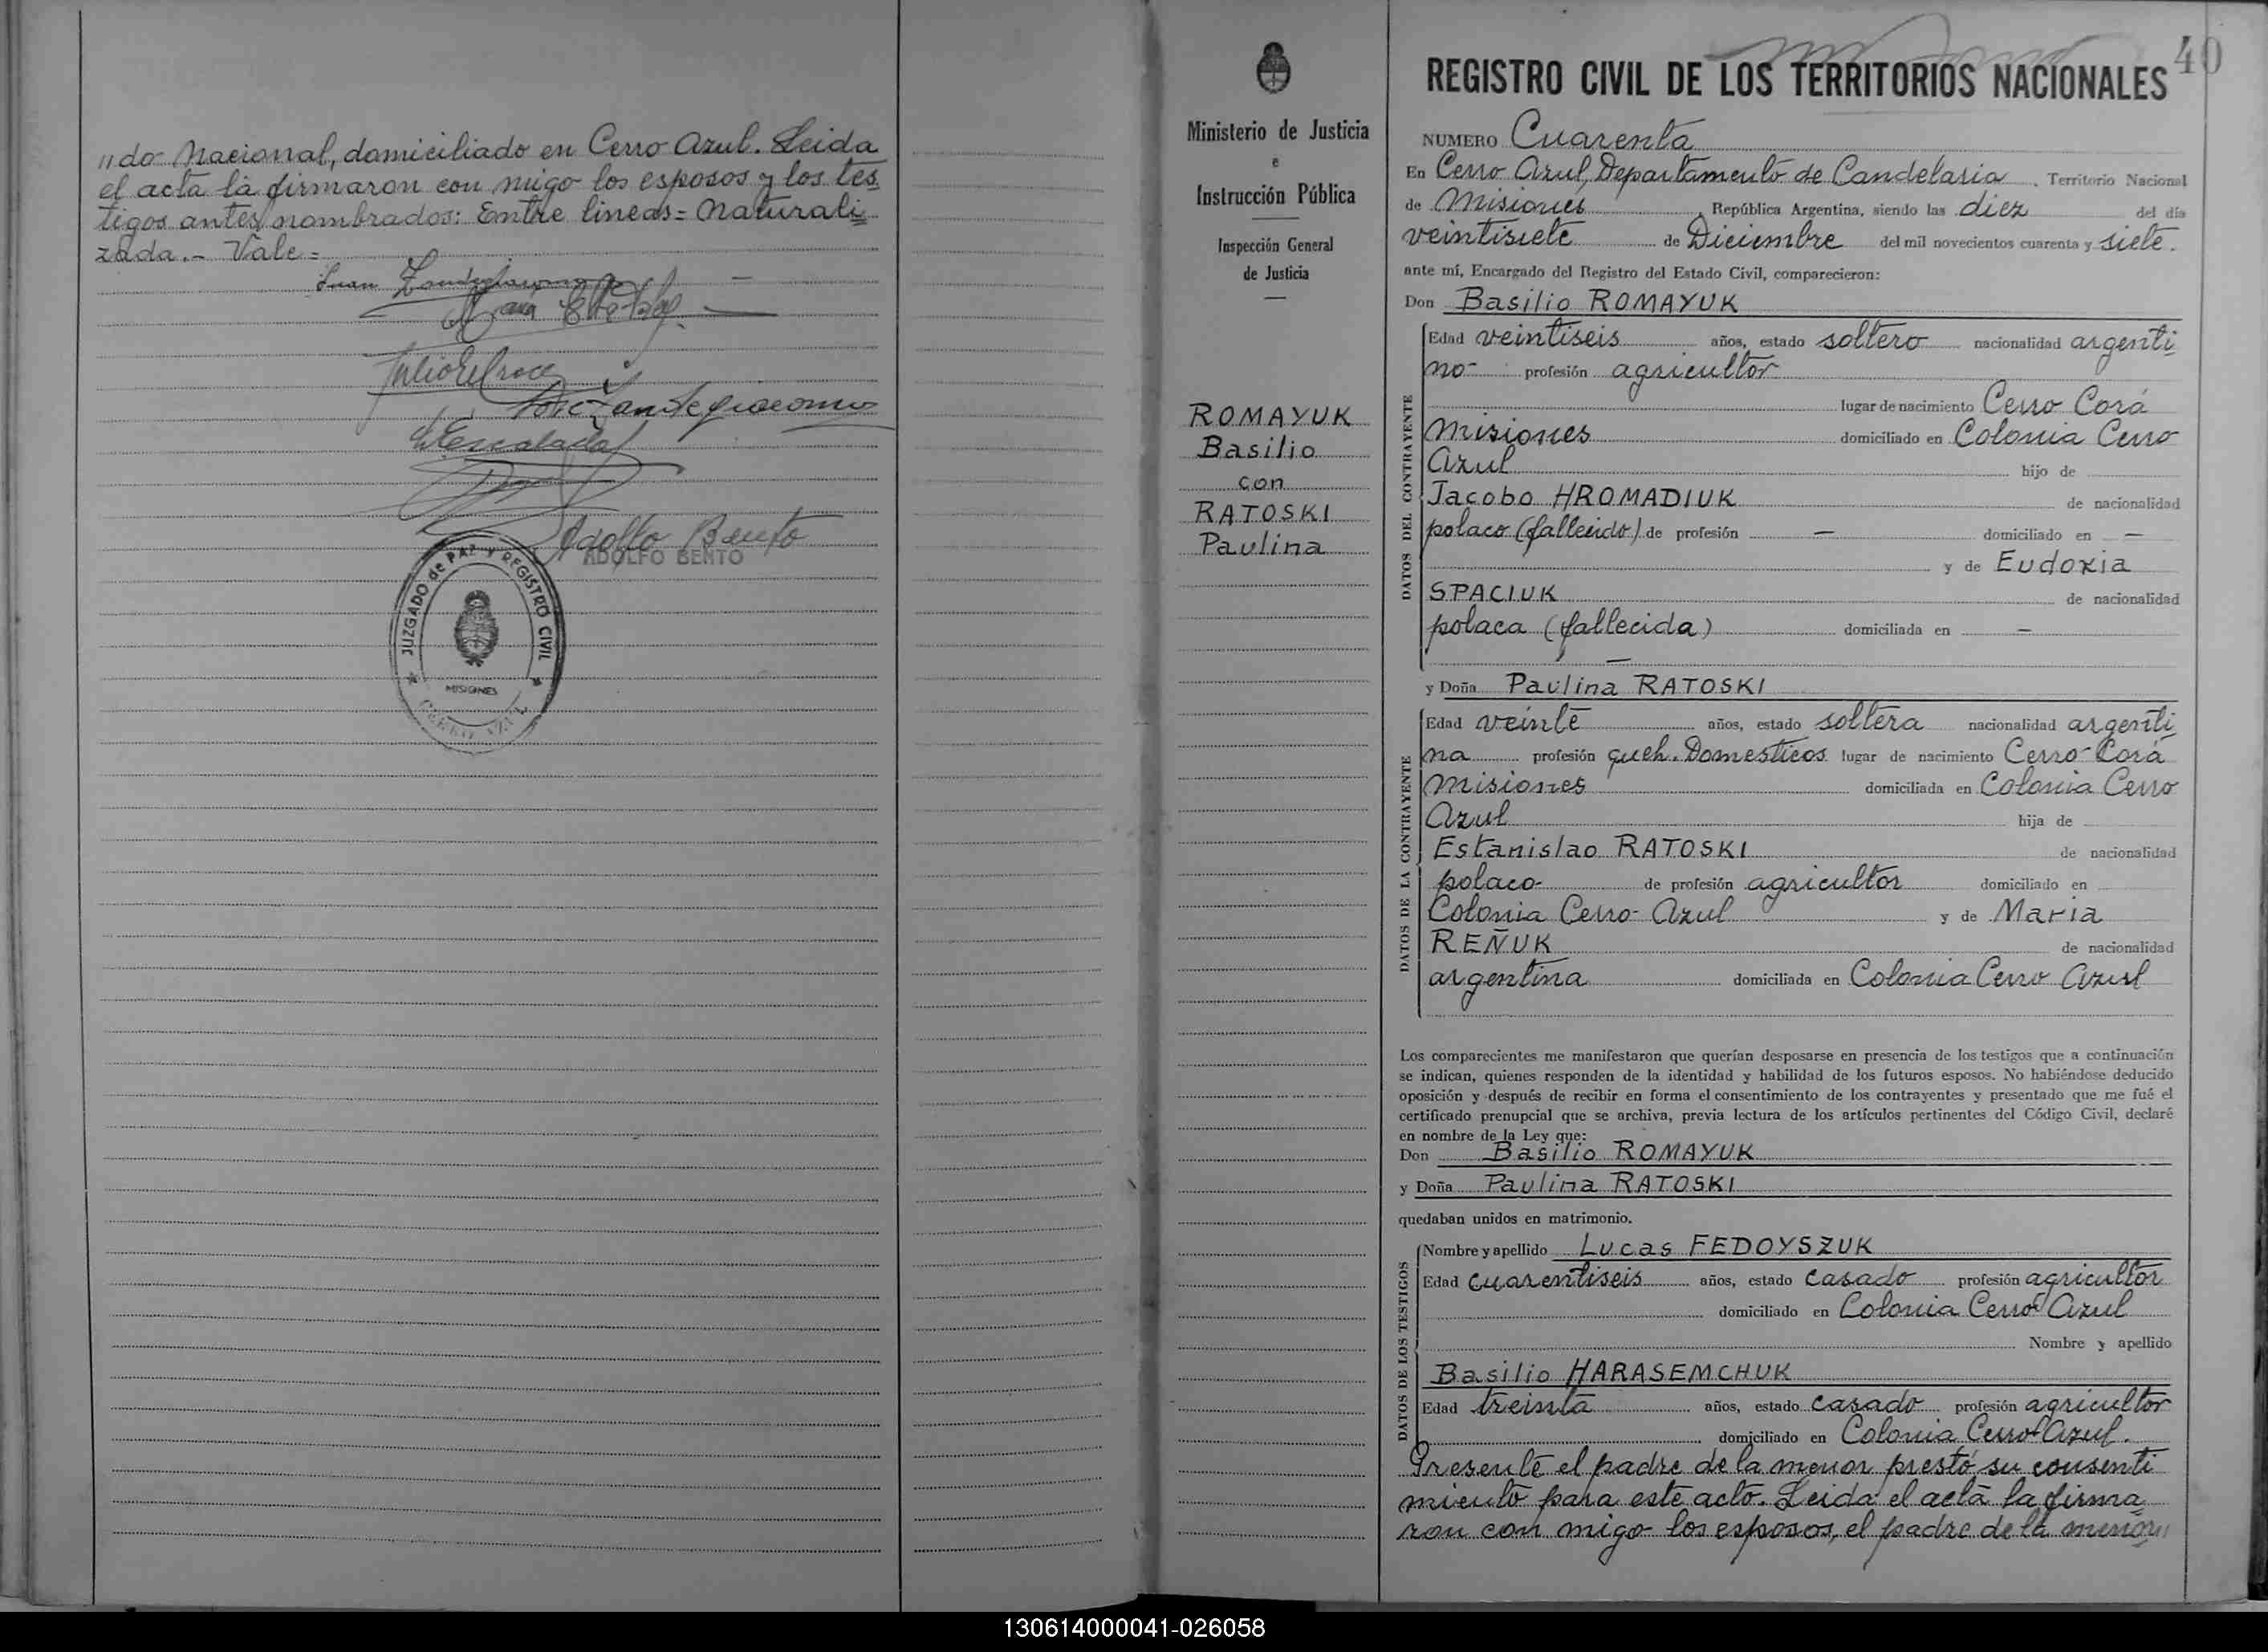 //do Nacional, domiciliado en Cerro Azul. Leida
el acta la firmaron con migo los esposos y los tes
tigos antes nombrados: Entre lineas= Naturali
zada.- Vale=
Juan
Adolfo Bento
ADOLFO BENTO
JUZGADO de PAZ Y REGISTRO CIVIL
MISIONES
CERRO AZUL
Ministerio de Justicia
e
Instrucción Pública
Inspección General
de Justicia
ROMAYUK
Basilio
con
RATOSKI
Paulina
40
REGISTRO CIVIL DE LOS TERRITORIOS NACIONALES
NUMERO Cuarenta
En Cerro Azul, Departamento de Candelaria , Territorio Nacional
de Misiones , República Argentina, siendo las diez del día
veintisiete de Diciembre del mil novecientos cuarenta y siete.
ante mí, Encargado del Registro del Estado Civil, comparecieron:
Don Basilio ROMAYUK
DATOS DEL CONTRAYENTE
Edad veintiseis años, estado soltero nacionalidad argenti
no- profesión agricultor
lugar de nacimiento Cerro Corá
Misiones domiciliado en Colonia Cerro
Azul hijo de
Jacobo HROMADIUK de nacionalidad
polaco (fallecido) de profesión — domiciliado en —
y de Eudoxia
SPACIUK de nacionalidad
polaca (fallecida) domiciliada en —
—
y Doña Paulina RATOSKI
DATOS DE LA CONTRAYENTE
Edad veinte años, estado soltera nacionalidad argenti
na profesión queh. Domesticos lugar de nacimiento Cerro-Corá
Misiones domiciliada en Colonia Cerro
Azul hija de
Estanislao RATOSKI de nacionalidad
polaco- de profesión agricultor domiciliado en
Colonia Cerro-Azul y de Maria
REÑUK de nacionalidad
argentina domiciliada en Colonia Cerro Azul
Los comparecientes me manifestaron que querían desposarse en presencia de los testigos que a continuación
se indican, quienes responden de la identidad y habilidad de los futuros esposos. No habiéndose deducido
oposición y después de recibir en forma el consentimiento de los contrayentes y presentado que me fué el
certificado prenupcial que se archiva, previa lectura de los artículos pertinentes del Código Civil, declaré
en nombre de la Ley que:
Don Basilio ROMAYUK
y Doña Paulina RATOSKI
quedaban unidos en matrimonio.
DATOS DE LOS TESTIGOS
Nombre y apellido Lucas FEDOYSZUK
Edad cuarentiseis años, estado casado profesión agricultor
domiciliado en Colonia Cerro Azul
Nombre y apellido
Basilio HARASEMCHUK
Edad treinta años, estado casado profesión agricultor
domiciliado en Colonia Cerro Azul.
Presente el padre de la menor prestó su consenti
miento para este acto. Leida el acta la firma
ron con migo los esposos, el padre de la menor//
130614000041-026058